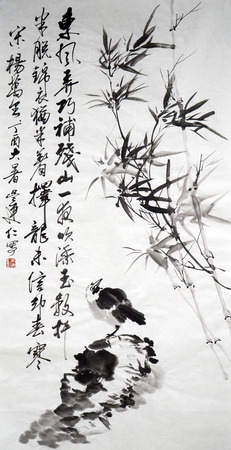 東風弄巧補殘山一夜吹添玉數竿
半脫錦衣猶半著籜龍未信春寒
宋楊萬里丁酉大暑建仁寫